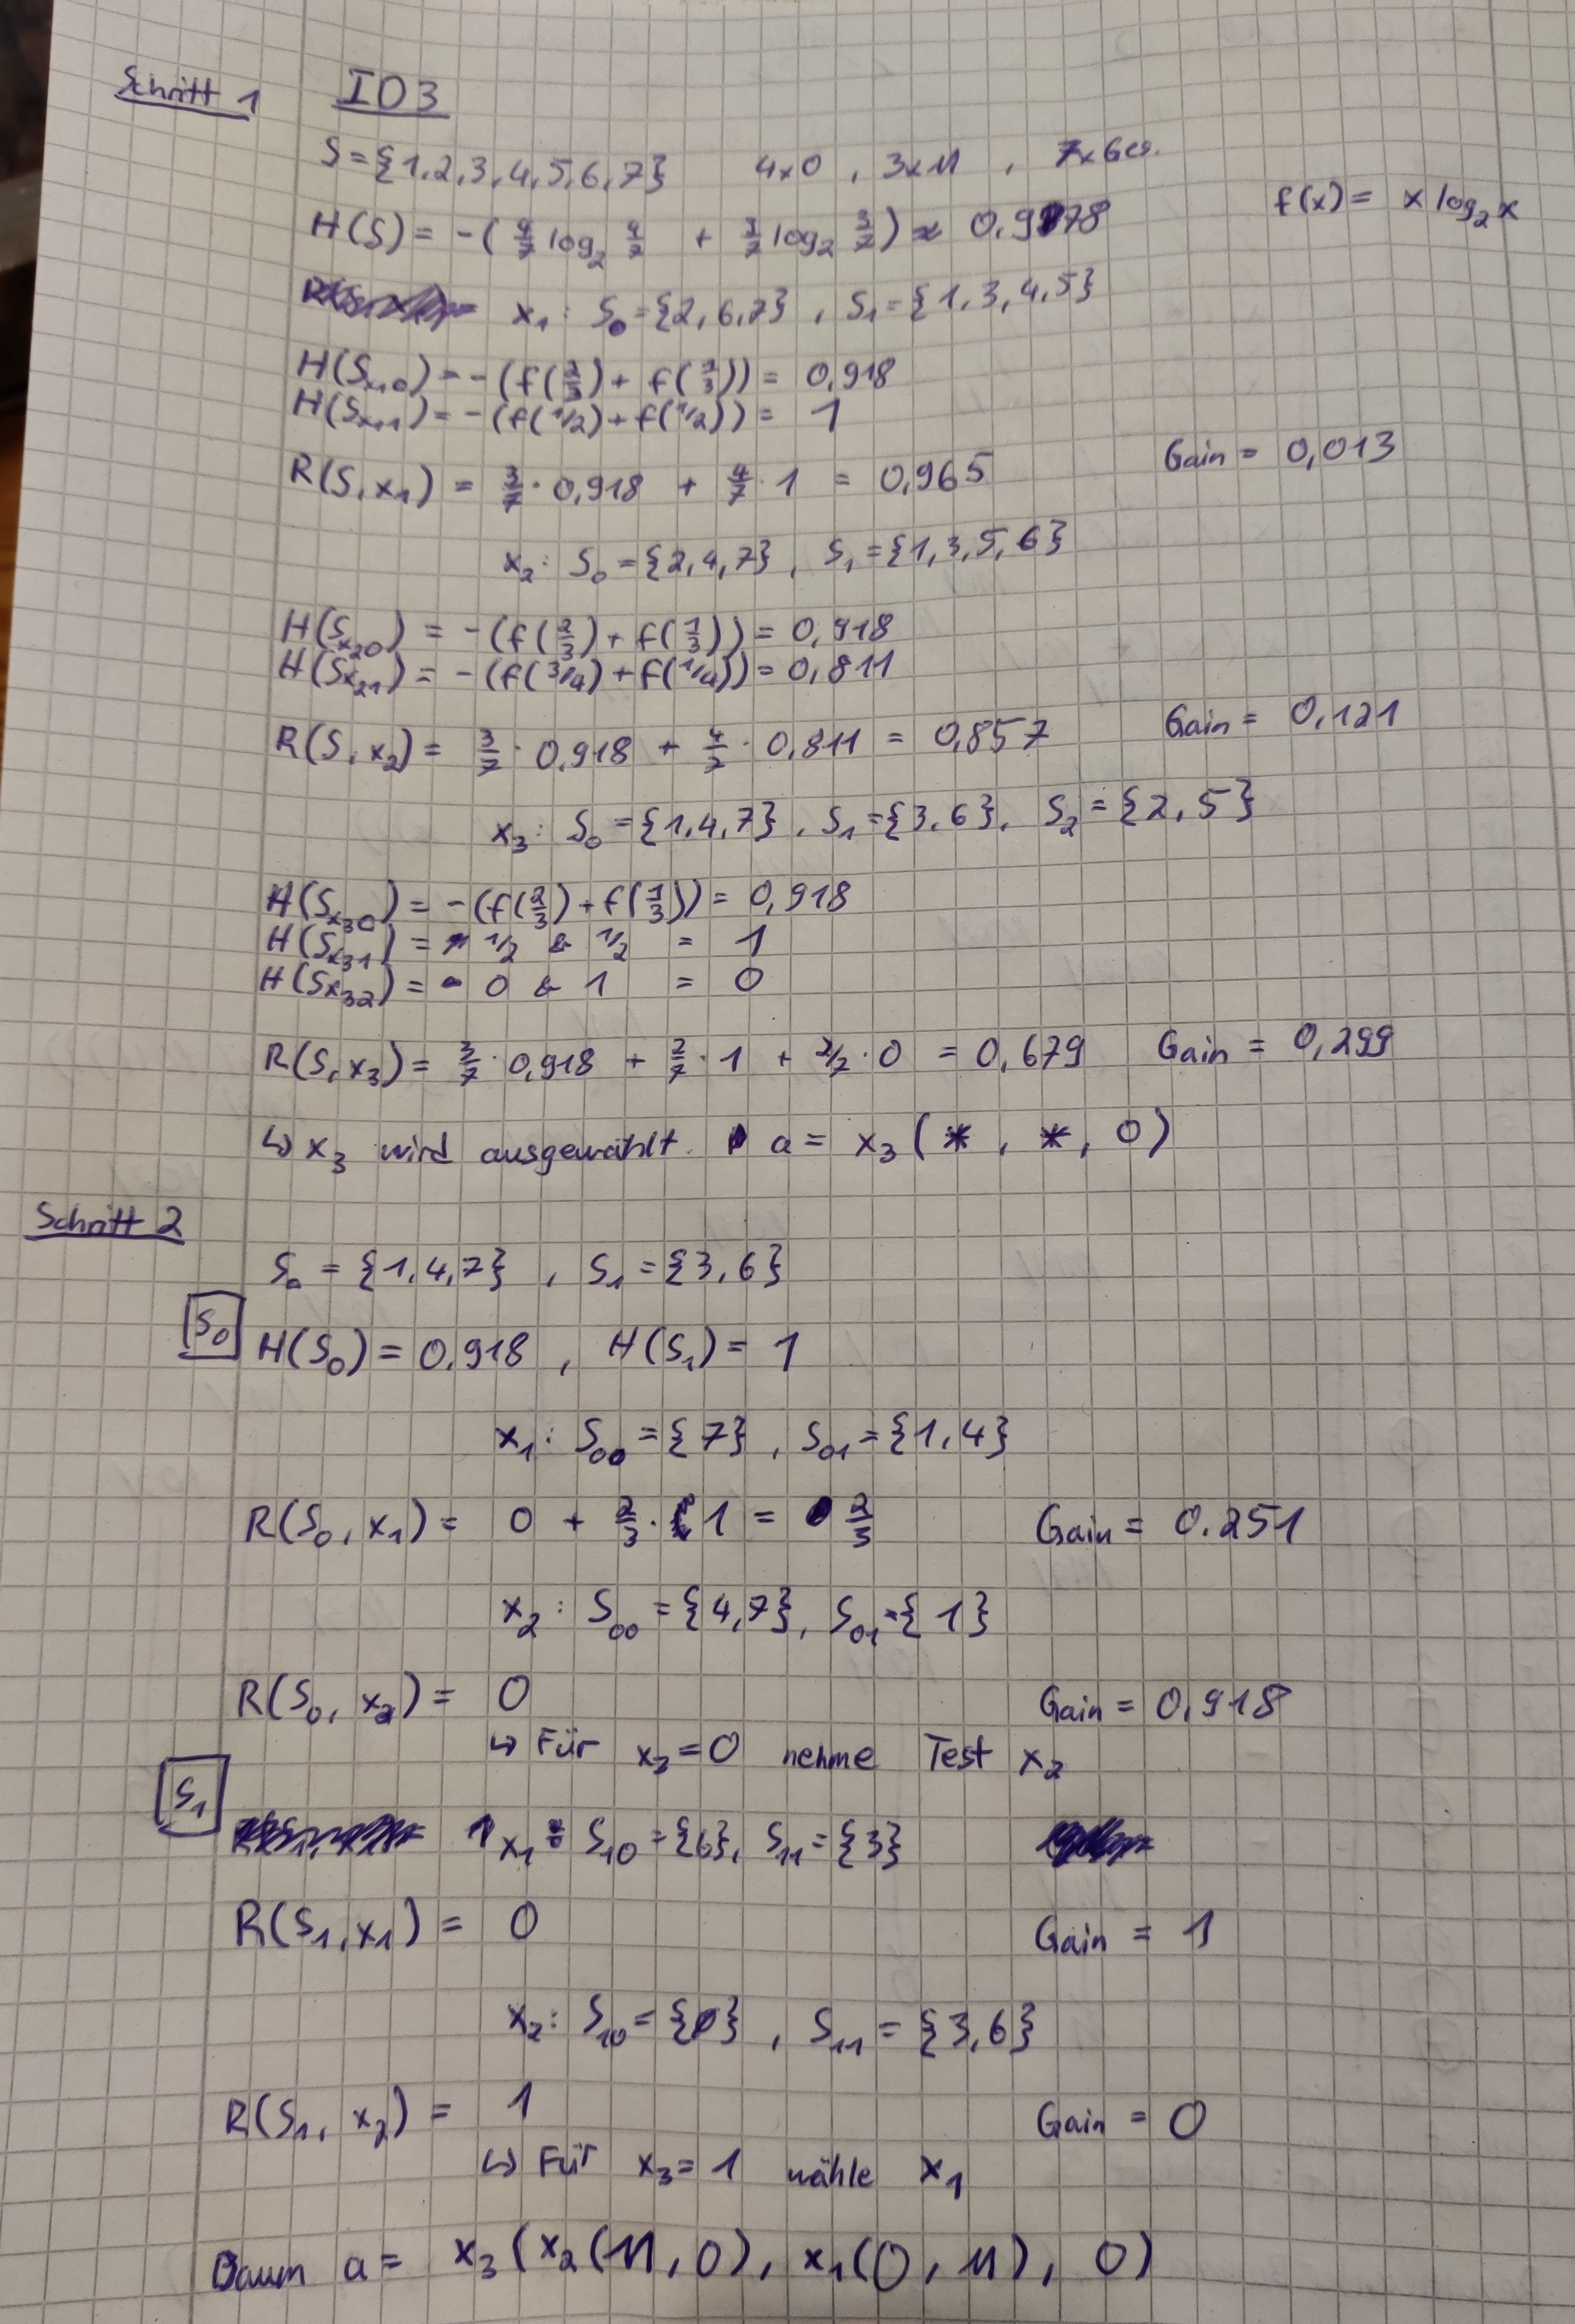 Schritt 1 ID3
S = {1,2,3,4,5,6,7} 4xO , 3xM , 7xGes.
H(S) = -( 4/7 log₂ 4/7 + 3/7 log₂ 3/7 ) ≈ 0,978 f(x) = x log₂ x
x₁ : S₀ = {2,6,7} , S₁ = {1,3,4,5}
H(Sₓ₁₀) = -(f(2/3) + f(1/3)) = 0,918
H(Sₓ₁₁) = -(f(1/2) + f(1/2)) = 1
R(S,x₁) = 3/7 · 0,918 + 4/7 · 1 = 0,965 Gain = 0,013
x₂ : S₀ = {2,4,7} , S₁ = {1,3,5,6}
H(Sₓ₂₀) = -(f(2/3) + f(1/3)) = 0,918
H(Sₓ₂₁) = -(f(3/4) + f(1/4)) = 0,811
R(S,x₂) = 3/7 · 0,918 + 4/7 · 0,811 = 0,857 Gain = 0,121
x₃ : S₀ = {1,4,7} , S₁ = {3,6} , S₂ = {2,5}
H(Sₓ₃₀) = -(f(2/3) + f(1/3)) = 0,918
H(Sₓ₃₁) = 1/2 & 1/2 = 1
H(Sₓ₃₂) = 0 & 1 = 0
R(S,x₃) = 3/7 · 0,918 + 2/7 · 1 + 2/7 · 0 = 0,679 Gain = 0,299
↳ x₃ wird ausgewählt. a = x₃ ( * , * , O )
Schritt 2
S₀ = {1,4,7} , S₁ = {3,6}
S₀ H(S₀) = 0,918 , H(S₁) = 1
x₁ : S₀₀ = {7} , S₀₁ = {1,4}
R(S₀,x₁) = 0 + 2/3 · 1 = 2/3 Gain = 0.251
x₂ : S₀₀ = {4,7} , S₀₁ = {1}
R(S₀,x₂) = 0 Gain = 0,918
↳ Für x₃ = 0 nehme Test x₂
S₁
x₁ : S₁₀ = {6} , S₁₁ = {3}
R(S₁,x₁) = 0 Gain = 1
x₂ : S₁₀ = {∅} , S₁₁ = {3,6}
R(S₁,x₂) = 1 Gain = 0
↳ Für x₃ = 1 wähle x₁
Baum a = x₃ ( x₂ (M,O) , x₁ (O,M) , O )